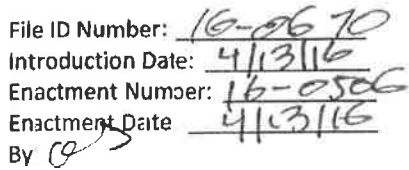 File ID Number: 16-0670
Introduction Date: 4/13/16
Enactment Number: 16-0506
Enactment Date 4/13/16
By